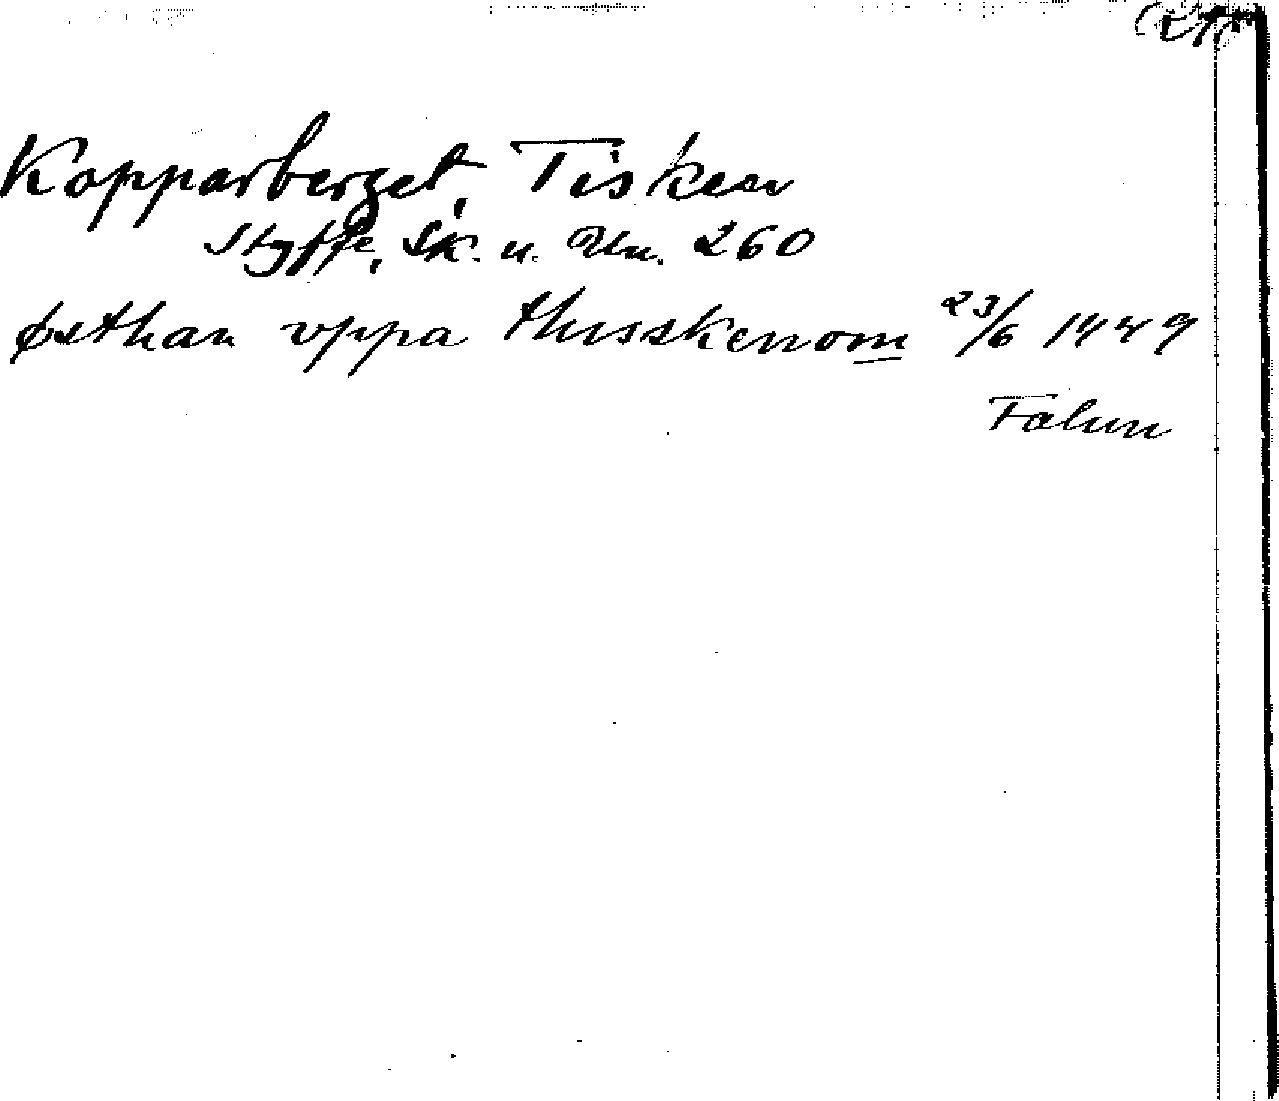 Kopparberget, Tisken
Styffe, Sk. u. Un. 260
østhan vppa thisskenom 23/6 1449
Falun